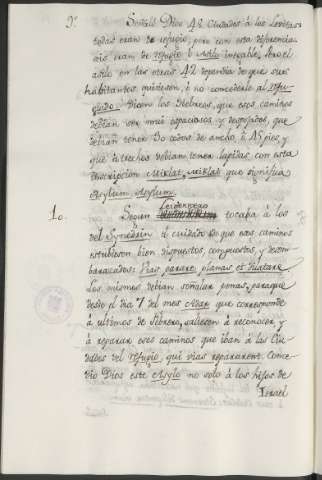 9.º Señaló Dios 48 Ciudades á los Levitas
todas eran de refugio, pero con esta diferencia
seis eran de refugio ó Asilo inegable, Pero el
asilo en las otras 42 dependia de que sus
habitantes quisiesen, ó no concederle al refu-
giado. Dicen los Hebreos, que esos caminos
debian ser mui espaciosos, y despejados, que
debian tener 30 codos de ancho, ó 45 pies, y
que á trechos debian tener lapidas con esta
inscripcion Miklat, miklat que significa
Asylum, Asylum.
10. Segun tocaba á los
del Synedrin el cuidado de que esos caminos
estubiesen bien dispuestos, compuestos, y desem-
barazados: Vias parare, planas et
Los mismos debian señalar para que
desde el dia 7 del mes Adar que corresponde
á ultimos de Febrero, saliesen á reconocer, y
á reparar esos caminos que iban á las Ciu-
dades del refugio, qui vias repararent. Conce-
dio Dios este Asylo no solo á los hijos de
Israel